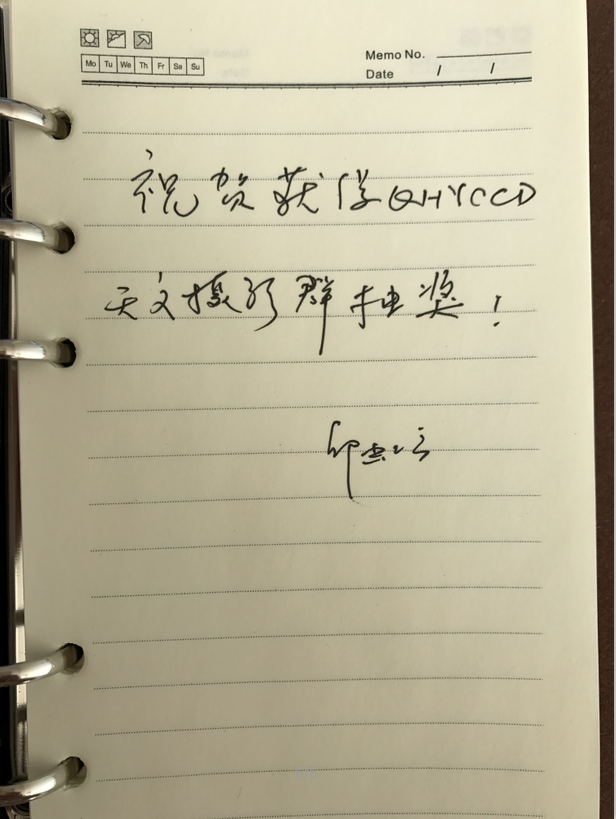 Mo Tu We Th Fr Sa Su
Memo No.
Date / /
祝贺获得QHYCCD
天文摄影群抽奖!